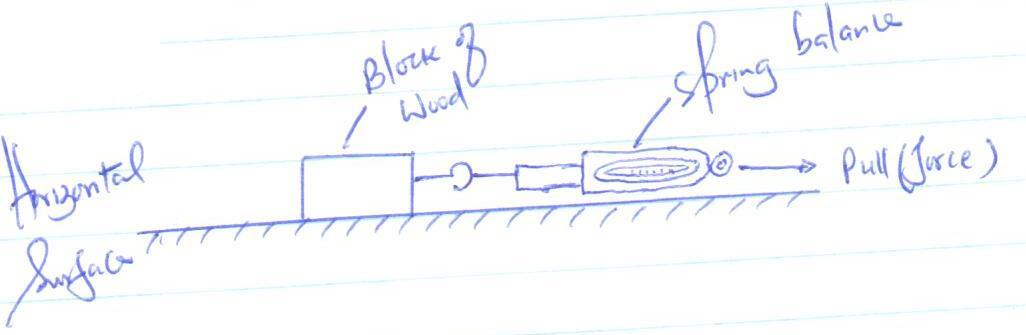 Block of
Wood
Spring balance
Horizontal
Surface
Pull (force)